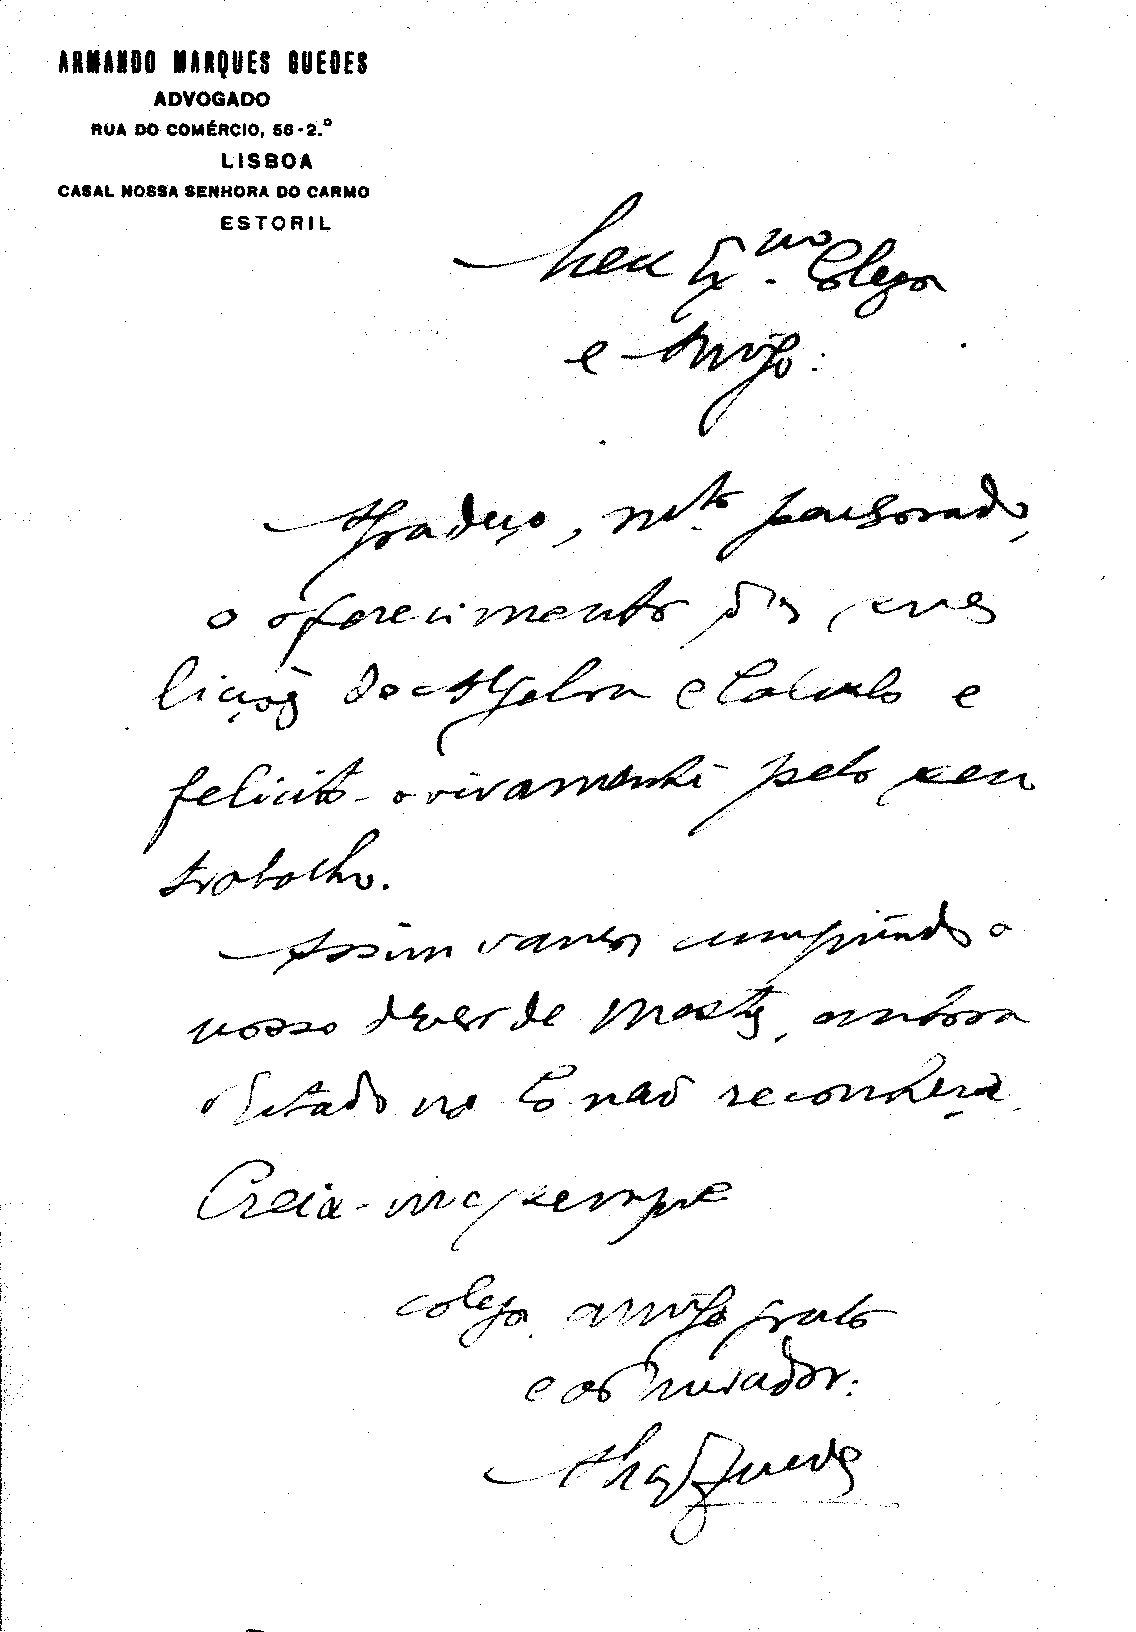 ARMANDO MARQUES GUEDES
ADVOGADO
RUA DO COMÉRCIO, 56-2.º
LISBOA
CASAL NOSSA SENHORA DO CARMO
ESTORIL
Meu Ex.mo Colega
e Amigo:
Agradeço, mt.o penhorado,
o oferecimento das suas
lições de Algebra e Calculo e
felicito-o vivamente pelo seu
trabalho.
Assim vamos cumprindo o
nosso dever de Mestres, embora
o Estado no-lo não reconheça.
Creia-me sempre
colega amigo grato
e admirador:
AMarques Guedes